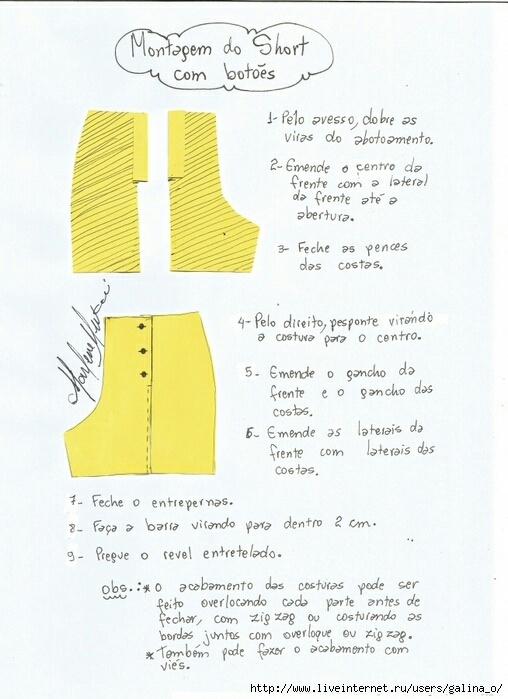 Montagem do Short
com botões
1- Pelo avesso, dobre as
viras do abotoamento.
2- Emende o centro da
frente com a lateral
da frente até a
abertura.
3- Feche as pences
das costas.
Marlene Mukai
4- Pelo direito, pesponte virando
a costura para o centro.
5- Emende o gancho da
frente e o gancho das
costas.
6- Emende as laterais da
frente com laterais das
costas.
7- Feche o entrepernas.
8- Faça a barra virando para dentro 2 cm.
9- Pregue o revel entretelado.
obs.:* O acabamento das costuras pode ser
feito overlocando cada parte antes de
fechar, com zig zag ou costurando as
bordas juntos com overloque ou zig zag.
* Também pode fazer o acabamento com
viés.
http://www.liveinternet.ru/users/galina_o/